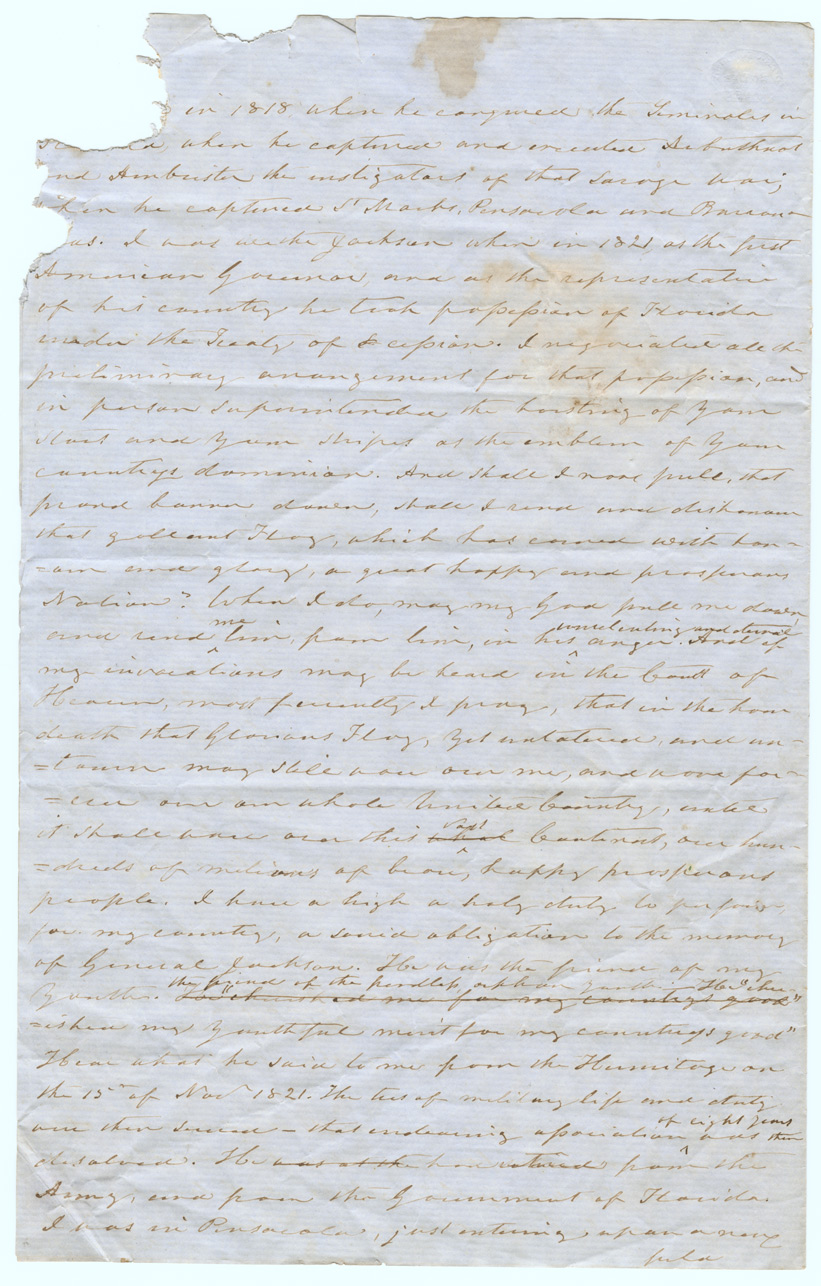 in 1818 when he conquered the Seminoles in
when he captured and executed Arbuthnot
and Ambrister the instigators of that Savage war,
when he captured St Marks, Pensacola and Baranc-
as. I was with Jackson when in 1821 as the first
American Governor, and as the representative
of his country he took possession of Florida
under the Treaty of Cession. I negociated all the
preliminary arrangement for that possession, and
in person superintended the hoisting of your
stars and your stripes as the emblem of your
countrys dominion. And shall I now pull, that
proud banner down, shall I rend and dishonour
that gallant Flag, which has covered with hon-
=our and glory, a great happy and prosperous
Nation? When I do, may my God pull me down
me unrelenting and eternal
and rend limb, from limb, in his anger. And if
my invocations may be heard in the Court of
Heaven, most fervently I pray, that in the hour
death that Glorious Flag, yet untatered, and un-
=torn may still wave over me, and wave for-
=ever over our whole United Country, until
vast
it shall wave over this Continent, over hun-
=dreds of milions of brave, happy prosperous
people. I have a high a holy duty to perform,
for my country, a sacred obligation to the memory
of General Jackson. He was the friend of my
the friend of the friendless, orphan youth. He "cher-
Youth. He "cherished me for my country's good"
=ished my Youthful merit for my countrys good"
Hear what he said to me from the Hermitage on
the 15th of Novr 1821. The ties of military life and duty
of eight years
were then severed - that endearing association was then
disolved. He was at the had retired from the
Army, and from the Government of Florida.
I was in Pensacola, just entering upon a new
field